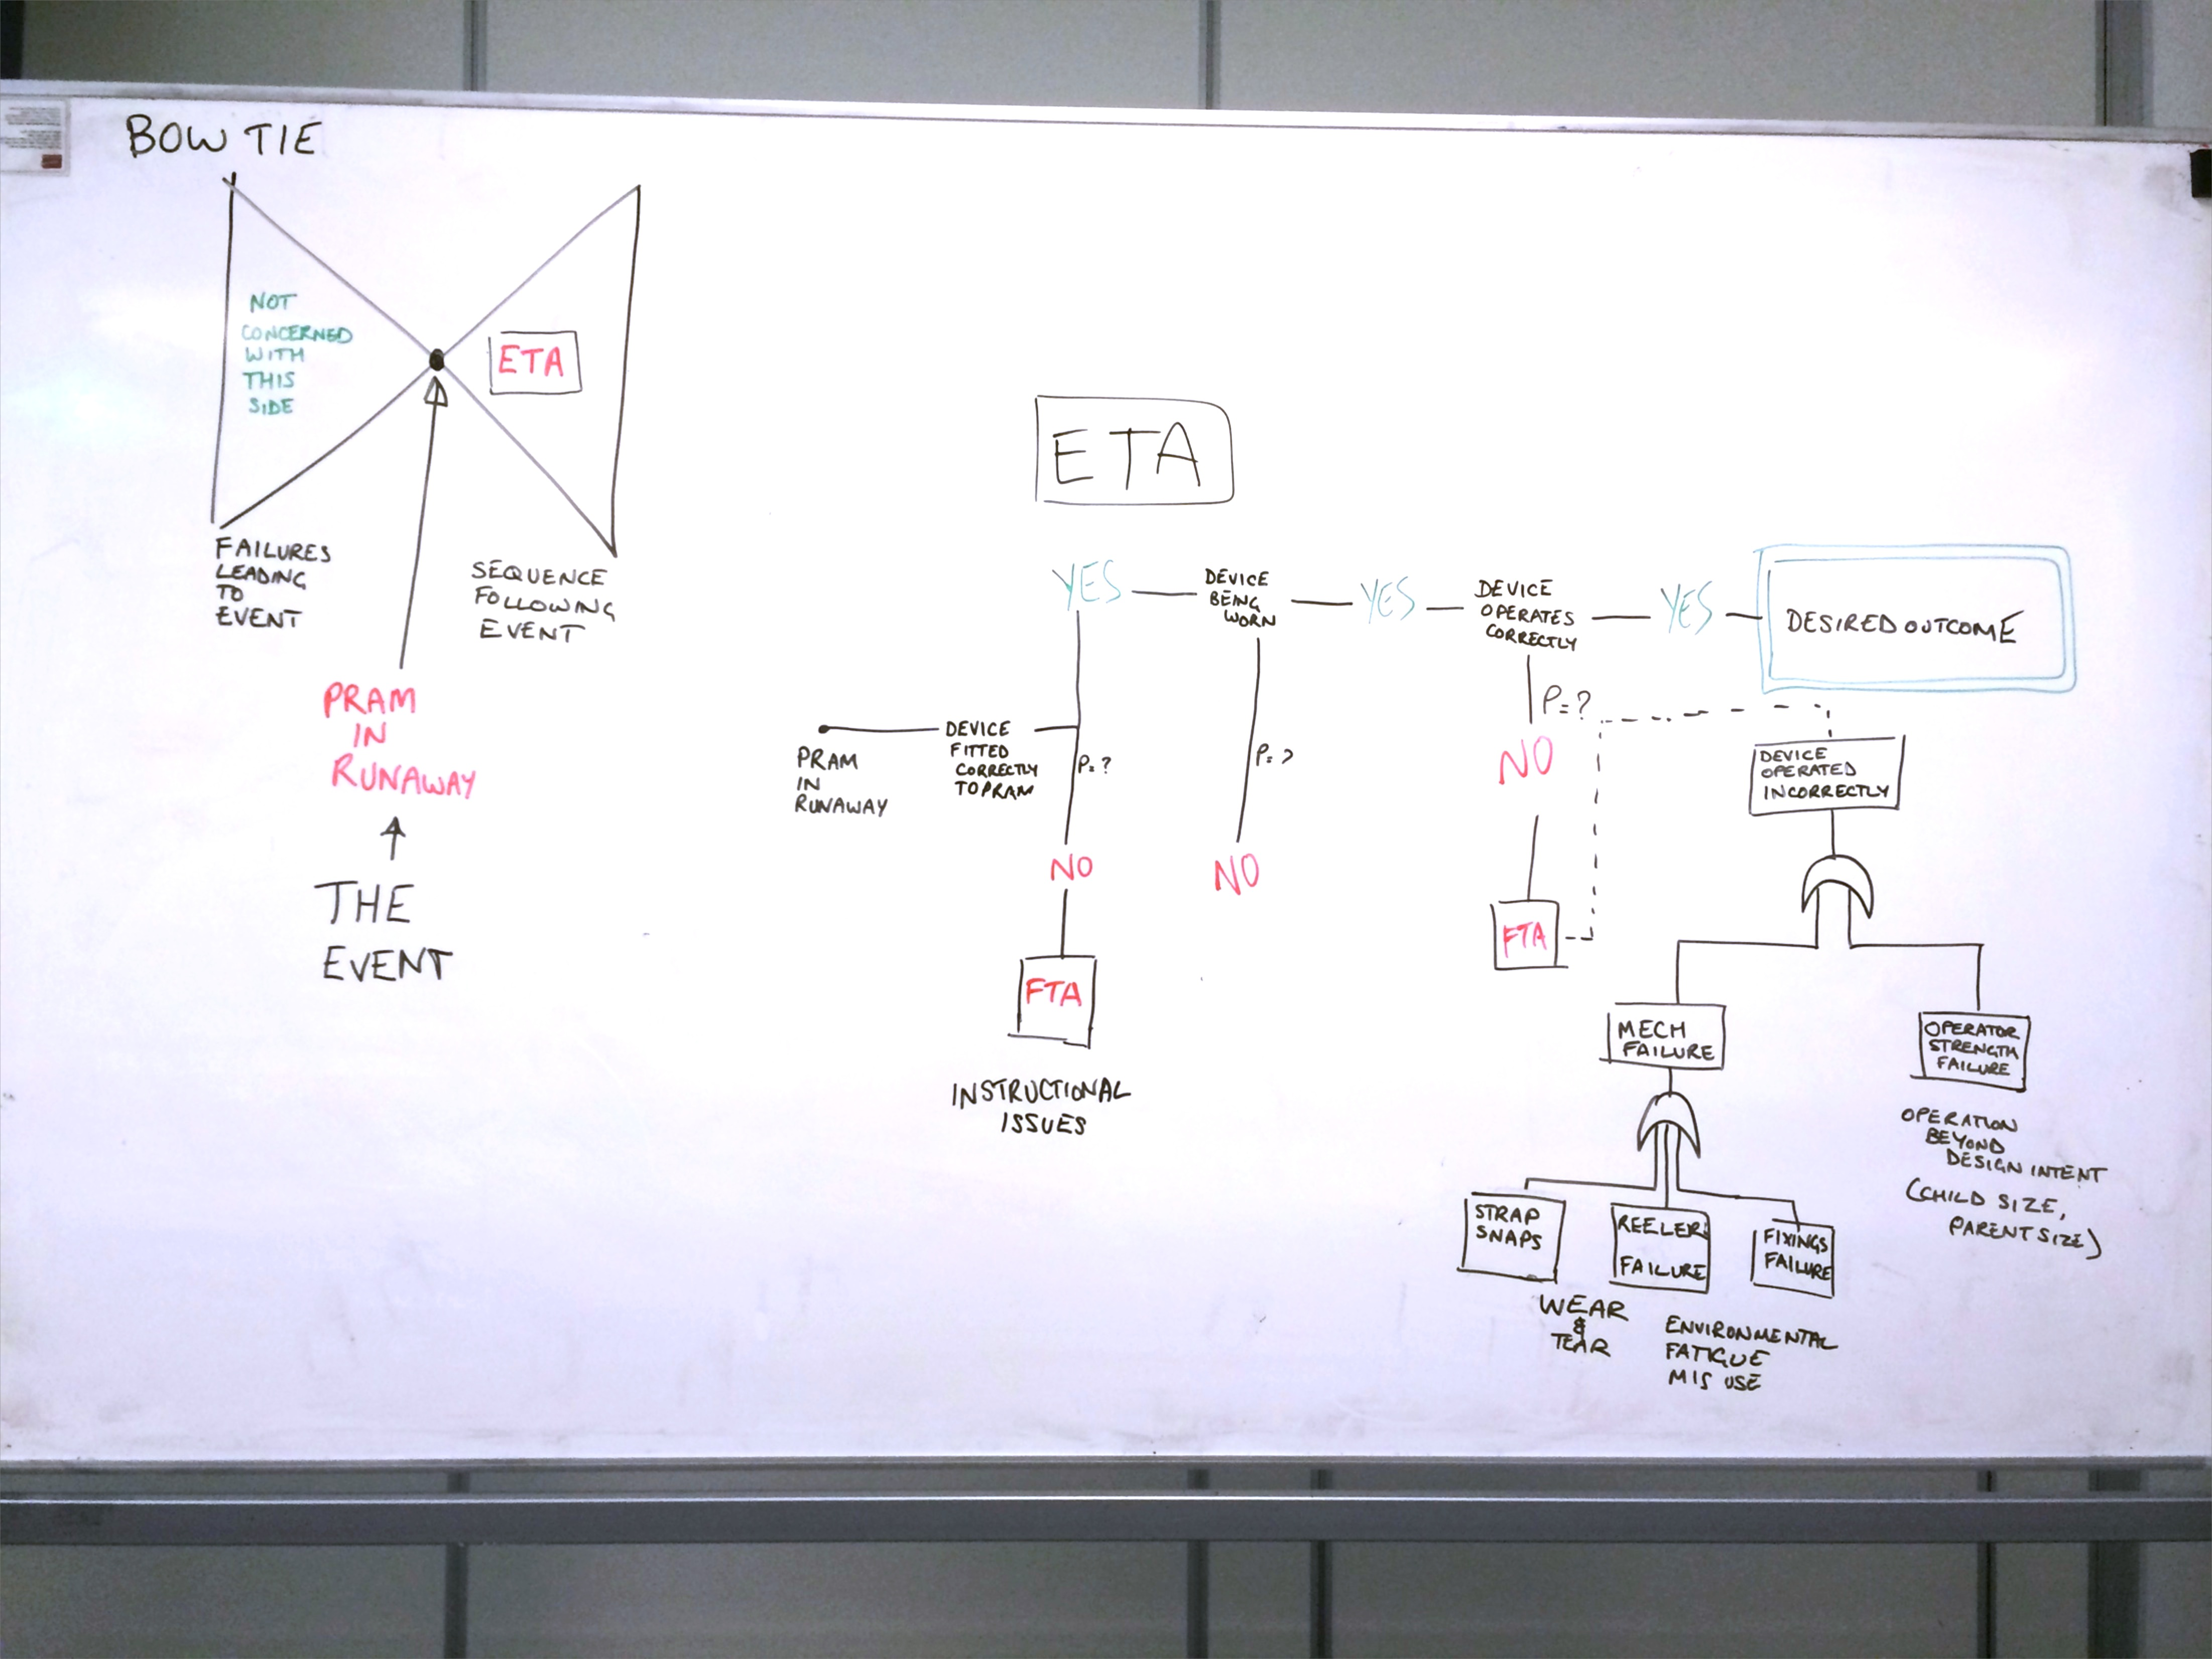 BOW TIE
NOT
CONCERNED
WITH
THIS
SIDE
ETA
FAILURES
LEADING
TO
EVENT
SEQUENCE
FOLLOWING
EVENT
PRAM
IN
RUNAWAY
THE
EVENT
ETA
PRAM
IN
RUNAWAY
DEVICE
FITTED
CORRECTLY
TO PRAM
YES
P=?
NO
FTA
INSTRUCTIONAL
ISSUES
DEVICE
BEING
WORN
P=?
NO
YES
DEVICE
OPERATES
CORRECTLY
P=?
NO
FTA
YES
DESIRED OUTCOME
DEVICE
OPERATED
INCORRECTLY
MECH
FAILURE
OPERATOR
STRENGTH
FAILURE
OPERATION
BEYOND
DESIGN INTENT
(CHILD SIZE,
PARENT SIZE)
STRAP
SNAPS
REELER
FAILURE
FIXINGS
FAILURE
WEAR
&
TEAR
ENVIRONMENTAL
FATIGUE
MIS USE